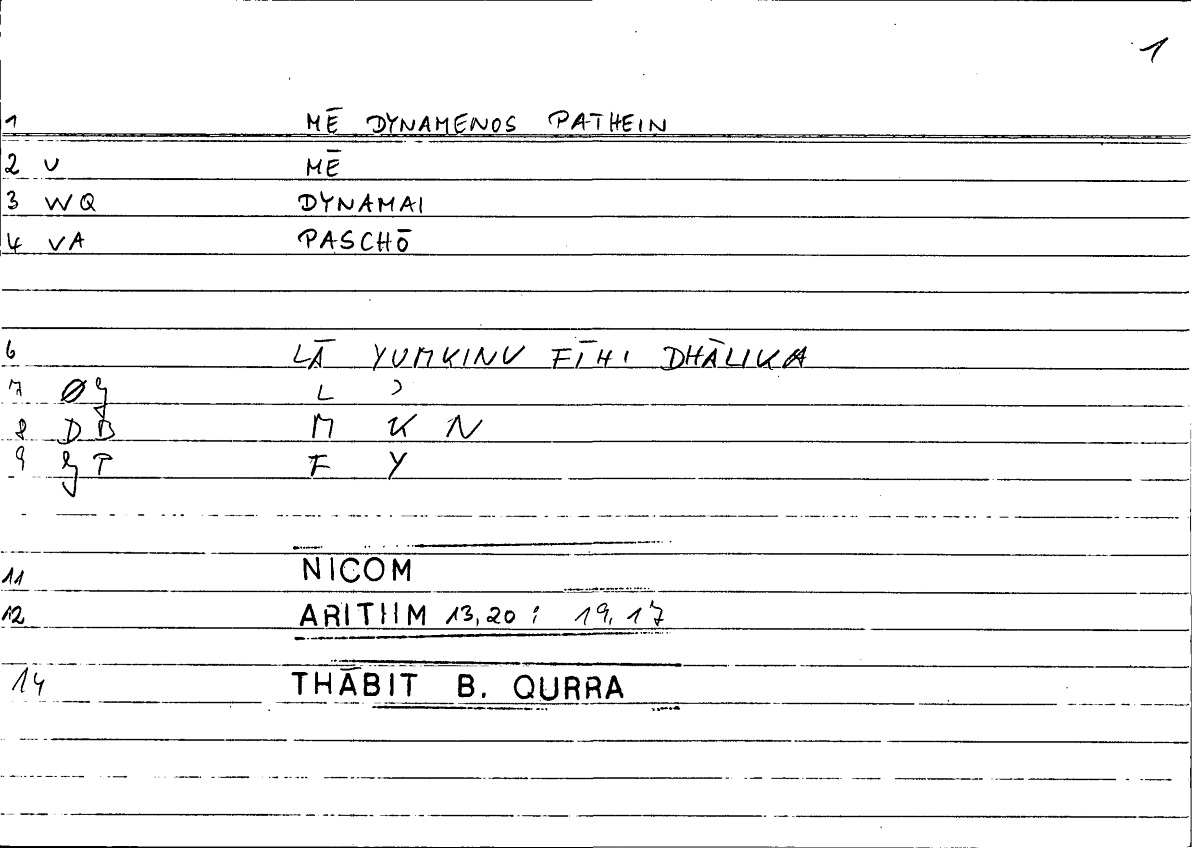 1
1 MĒ DYNAMENOS PATHEIN
2 V MĒ
3 WQ DYNAMAI
4 VA PASCHŌ
6 LĀ YUMKINU FĪHI DHĀLIKA
7 L ʾ
8 DB M K N
9 F Y
11 NICOM
12 ARITHM 13,20 : 19,17
14 THĀBIT B. QURRA